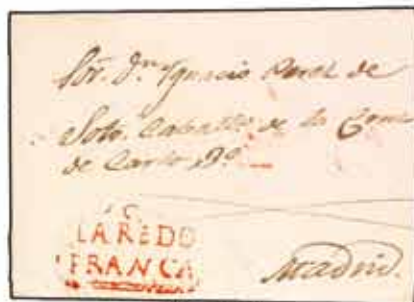 Sor. Dn. Ignacio Perez de
Soto. Caballo de la
de Carlo 3º
LAREDO
FRANCA
Madrid.